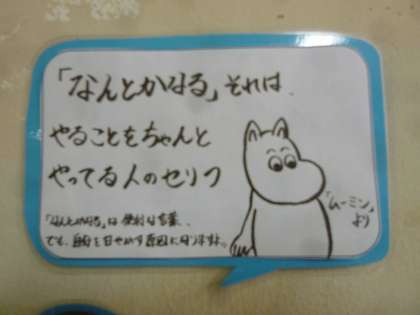 「なんとかなる」それは、
やることをちゃんと
やってる人のセリフ
「ムーミン」
より
「なんとかなる」は 便利な言葉、
でも、自分を甘やかす原因になりますよ。